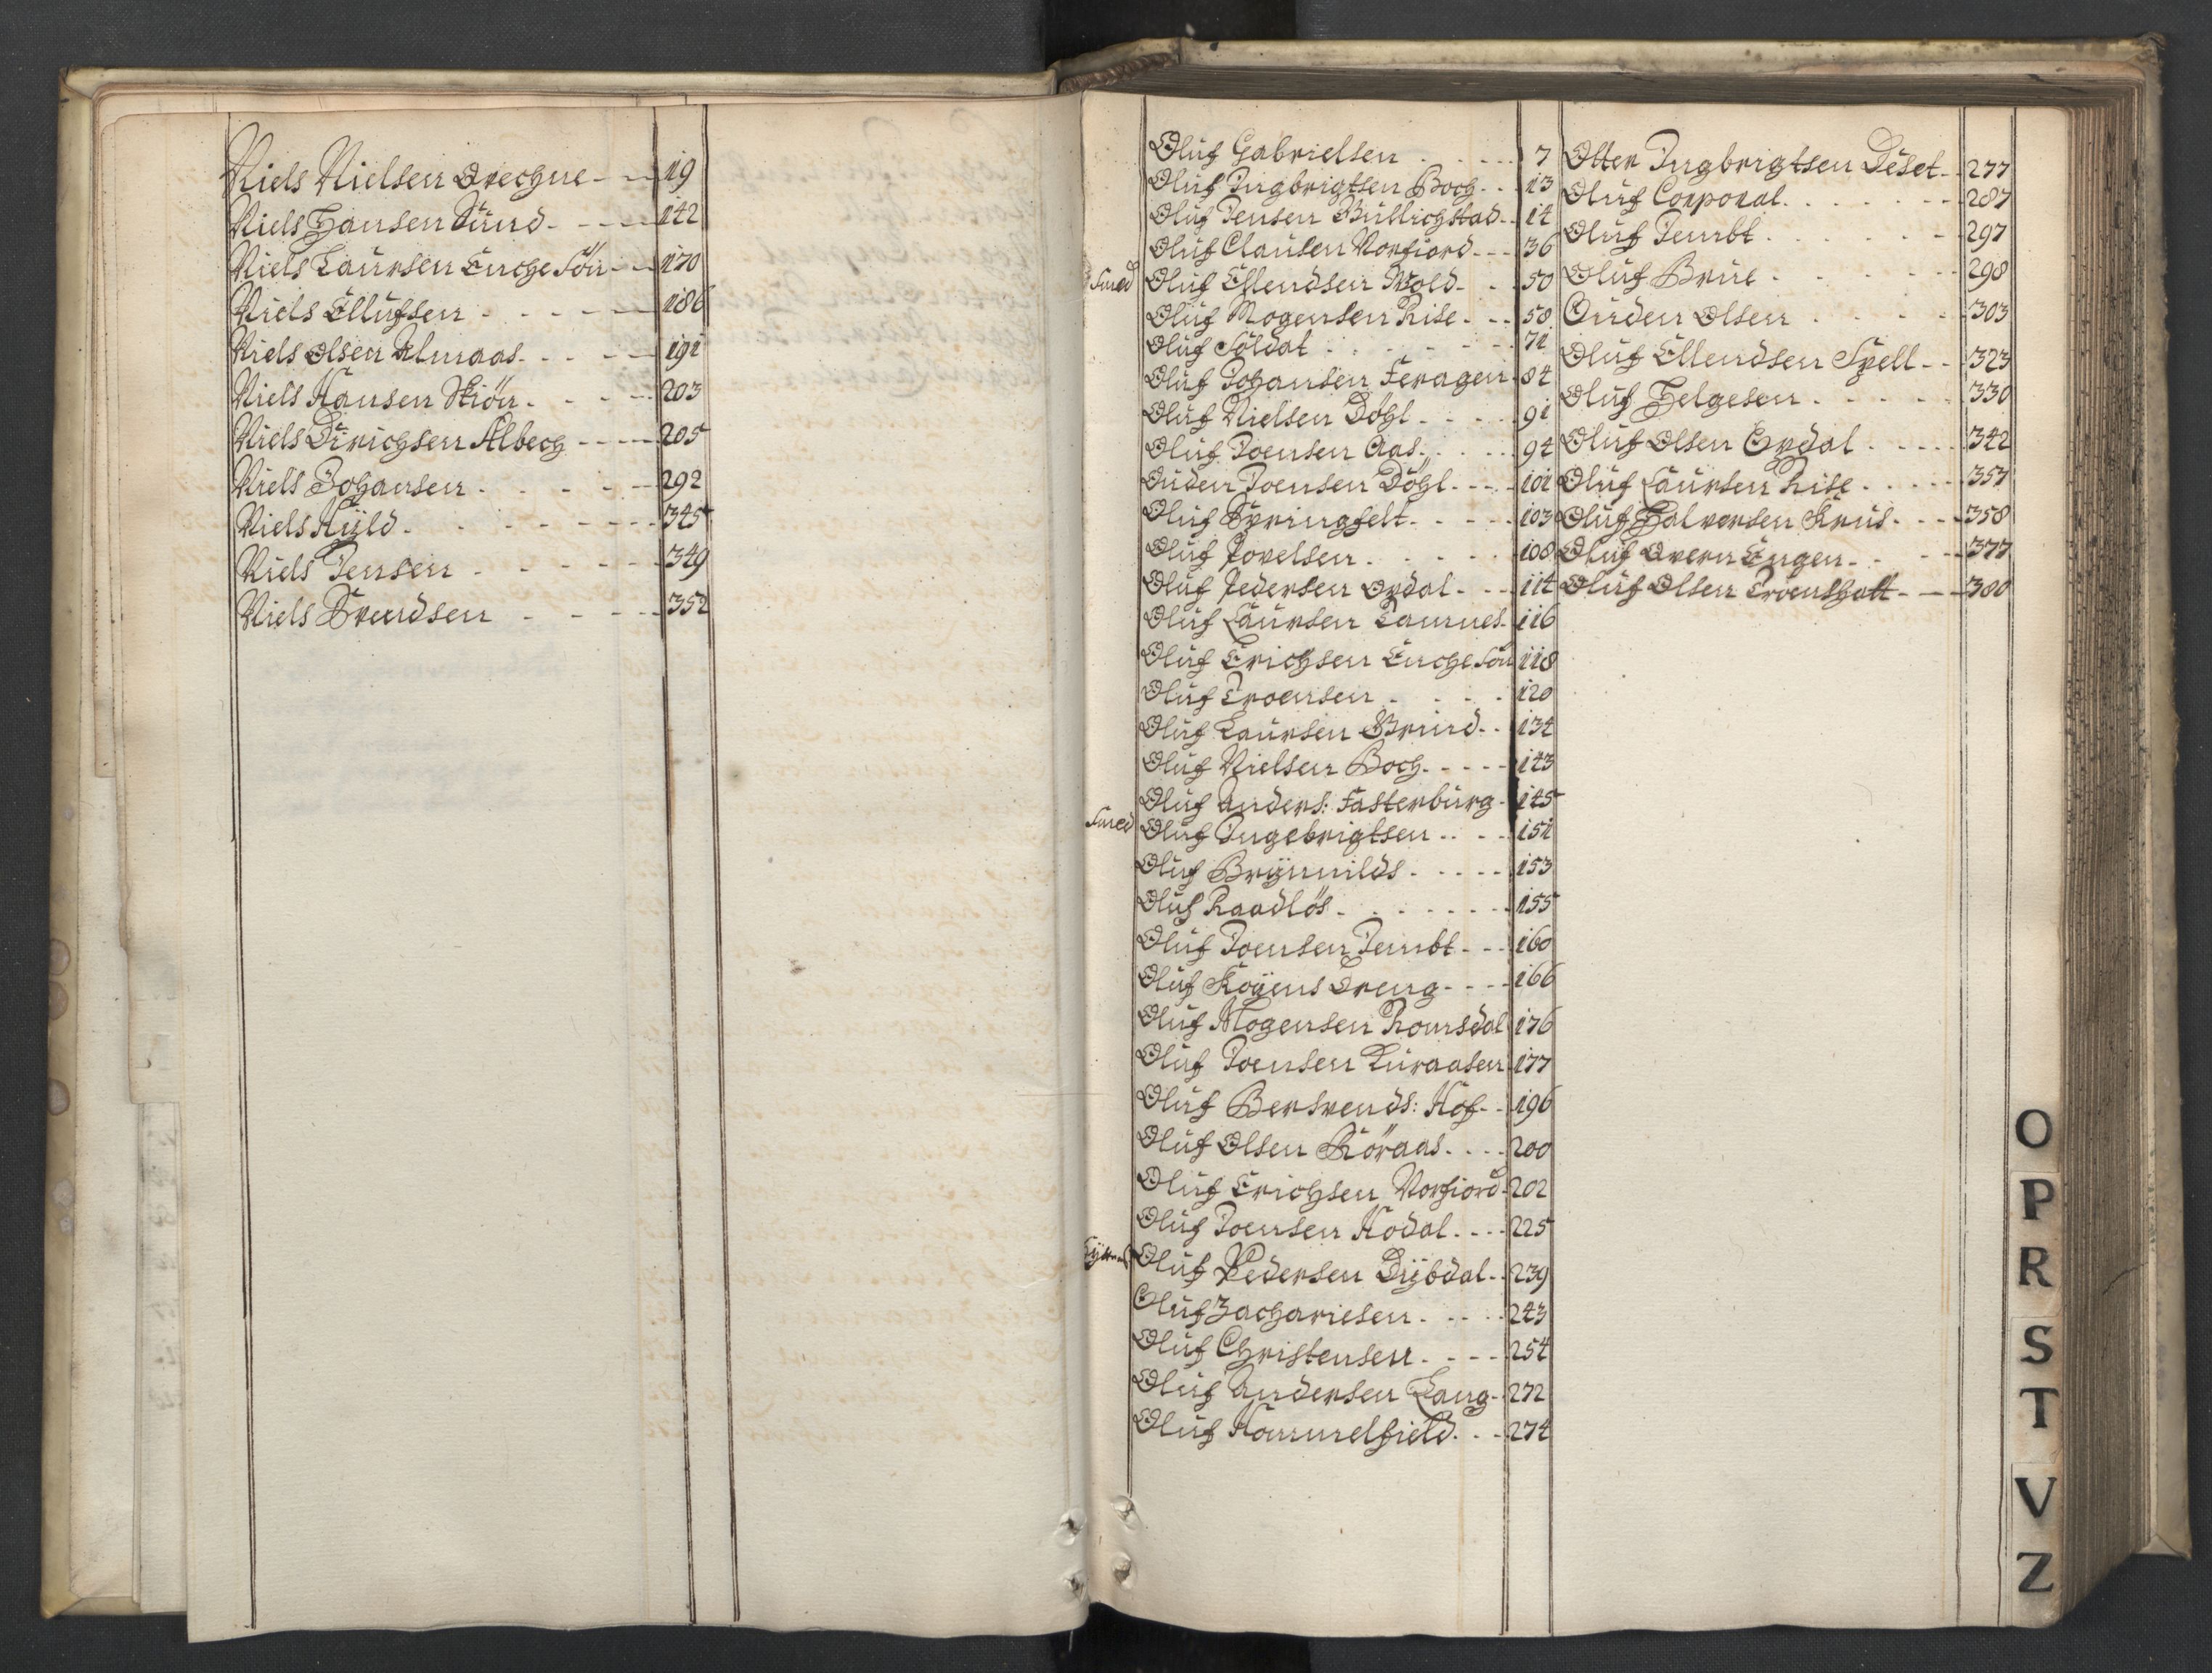 Niels Nielsen Qvechne - - 119
Niels Hansen Sund - - - 142
Niels Laursen Enche Sön - - 170
Niels Ellufsen - - - - 186
Niels Olsen Almaas - - - 191
Niels Hansen Skiön - - - 203
Niels Dirichsen Albech - - - 205
Niels Johansen - - - - 292
Niels Hyld - - - - - - 345
Niels Jensen - - - - - 349
Niels Svendsen - - - - 352
Oluf Gabrielsen - - - - 7
Oluf Ingbrigtsen Boch - - 13
Oluf Jensen Bullichstad - - 14
Oluf Clausen Norfiord - - - 36
Smed Oluf Ellendsen Wold - - 50
Oluf Mogensen Rise - - - 58
Oluf Soldat - - - - - - 71
Oluf Johansen Feragen - 84
Oluf Nielsen Döhl - - - - 91
Oluf Joensen Aas - - - - 94
Ouden Joensen Döhl - - - 101
Oluf Springfelt - - - - - 103
Oluf Povelsen - - - - - 108
Oluf Pedersen Ordal - - - 114
Oluf Laursen Tamnes - 116
Oluf Erichsen Enche Sön 118
Oluf Troensen - - - - 120
Oluf Laursen Brund - - 134
Oluf Nielsen Boch - - - - - 143
Oluf Anders: Fasterburg - 145
Smed Oluf Ingebrigtsen - - - - 151
Oluf Brynnilds - - - - - 153
Oluf Raadlös - - - - - - - 155
Oluf Joensen Jembt - - - 160
Oluf Köyens Dreng - - - - 166
Oluf Mogensen Romsdal 176
Oluf Joensen Kuraasen 177
Oluf Bersvends: Hof - - 196
Oluf Olsen Röraas - - - - 200
Oluf Erichsen Norfiord - 202
Oluf Joensen Hodal - - - - 225
Oluf Pedersen Dybdal - - 239
Oluf Zachariesen - - - - - 243
Oluf Christensen - - - - 254
Oluf Andersen Lang - 272
Oluf Hommelfield - - - 274
Otter Ingbrigtsen Deset - - 277
Oluf Corporal - - - - - - 287
Oluf Jembt - - - - - - 297
Oluf Brue - - - - - - 298
Ouden Olsen - - - - - 303
Oluf Ellendsen Spell - - 323
Oluf Helgesen - - - - - 330
Oluf Olsen Ordal - - - - - 342
Oluf Laursen Rise - - - - - 357
Oluf Halvorsen Krus - - - 358
Oluf Qvern Engen - - - - 377
Oluf Olsen Troenshatt - - - 380
O
P
R
S
T
V
Z